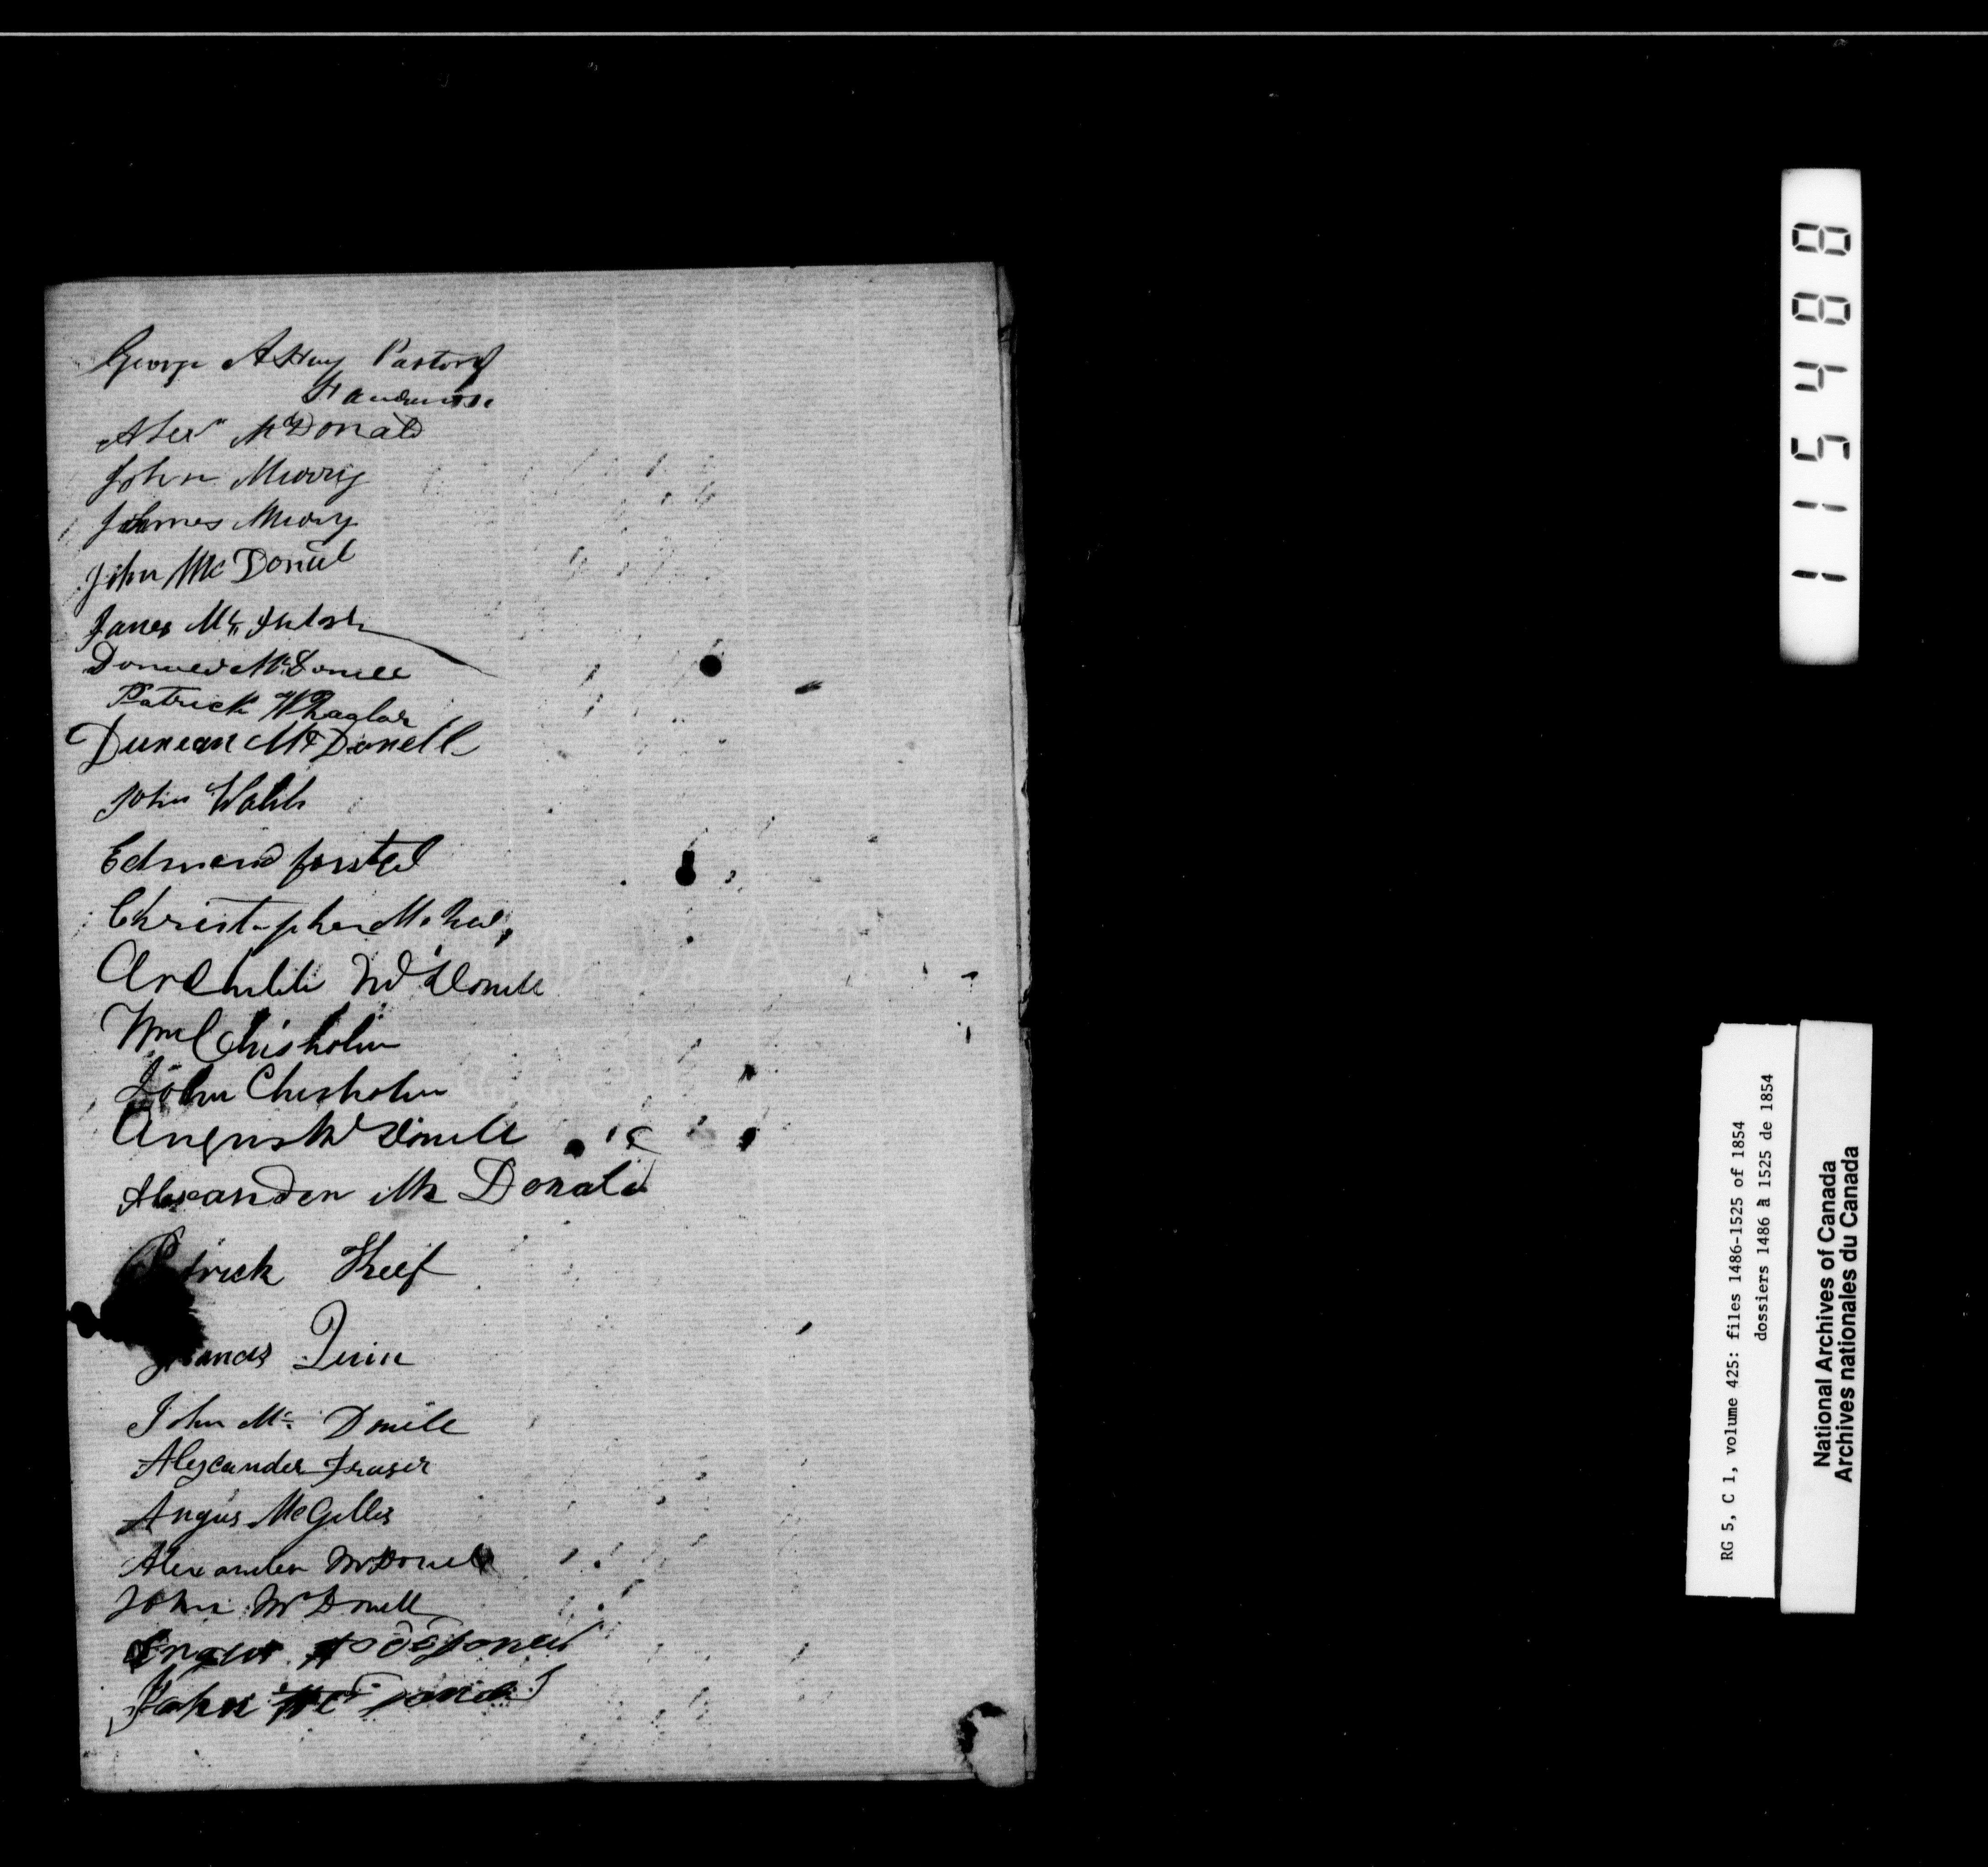 George A Hay Pastor of
St Andrews.
Alexr McDonald
John Murry
James Mury
John McDonel
James McIntosh
Donald McDonell
Patrick Whaglar
Duncan McDonell
John Walsh
Edmond
Christopher
McDonell
Wm Chisholm
John Chisholm
Angus McDonell
Alexander Mc Donald
Patrick Keef
Francis Quin
John Mc Donell
Alexcander Fraser
Angus McGillis
Alexander McDonell
John McDonell
Angus
John Mc
115488
RG 5, C 1, volume 425: files 1486-1525 of 1854
dossiers 1486 à 1525 de 1854
National Archives of Canada
Archives nationales du Canada